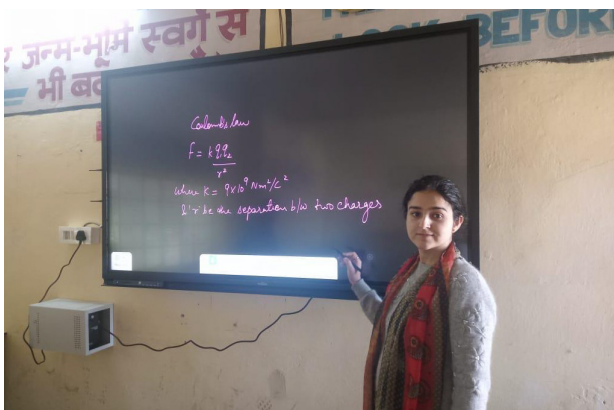 जन्म-भूमि स्वर्ग से
भी
LOOK BEFOR
Coulomb's law
F = k q₁q₂
r²
where K = 9×10⁹ Nm²/c²
& 'r' be the separation b/w two charges